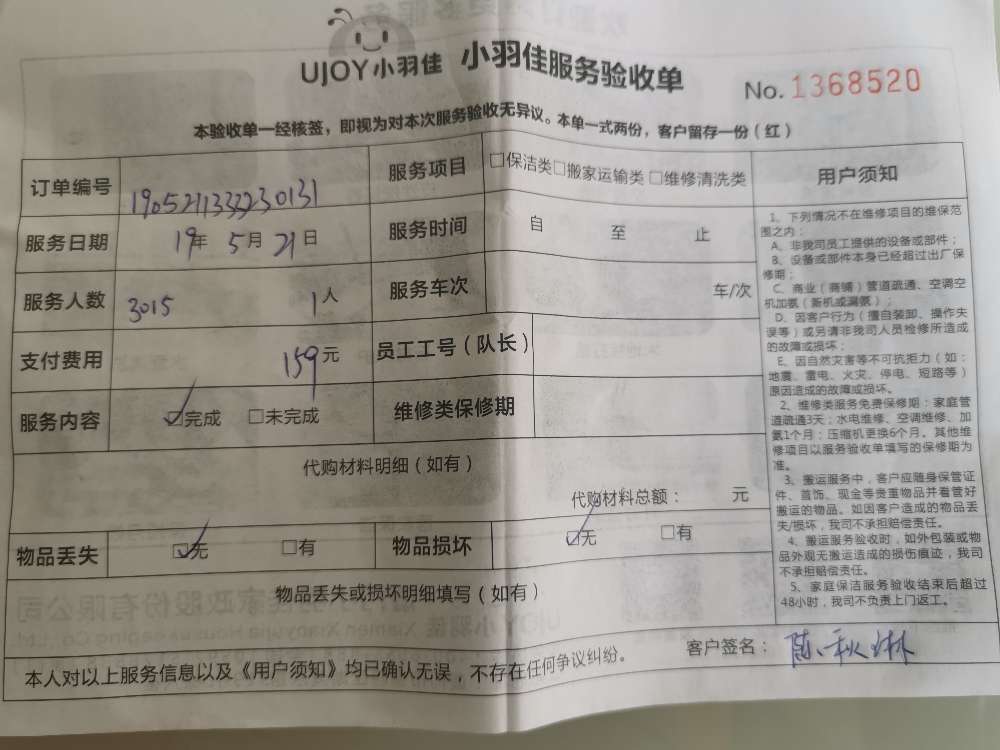 UJOY小羽佳 小羽佳服务验收单 No. 1368520
本验收单一经核签，即视为对本次服务验收无异议。本单一式两份，客户留存一份（红）
订单编号 190521133230131 服务项目 □保洁类□搬家运输类□维修清洗类
服务日期 19年 5月 21日 服务时间 自 至 止
服务人数 3015 1人 服务车次 车/次
支付费用 159元 员工工号（队长）
服务内容 ☑完成 □未完成 维修类保修期
代购材料明细（如有）
代购材料总额： 元
物品丢失 ☑无 □有 物品损坏 ☑无 □有
物品丢失或损坏明细填写（如有）
用户须知
1、下列情况不在维修项目的维保范
围之内：
A、非我司员工提供的设备或部件；
B、设备或部件本身已经超过出厂保
修期；
C、商业（商铺）管道疏通、空调空
机加氨（新机或漏氨）；
D、因客户行为（擅自装卸、操作失
误等）或另请非我司人员检修所造成
的故障或损坏；
E、因自然灾害等不可抗拒力（如：
地震、雷电、火灾、停电、短路等）
原因造成的故障或损坏。
2、维修类服务免费保修期：家庭管
道疏通3天；水电维修、空调维修、加
氨1个月；压缩机更换6个月。其他维
修项目以服务验收单填写的保修期为
准。
3、搬运服务中，客户应随身保管证
件、首饰、现金等贵重物品并看管好
搬运的物品。如因客户造成的物品丢
失/损坏，我司不承担赔偿责任。
4、搬运服务验收时，如外包装或物
品外观无搬运造成的损伤痕迹，我司
不承担赔偿责任。
5、家庭保洁服务验收结束后超过
48小时，我司不负责上门返工。
本人对以上服务信息以及《用户须知》均已确认无误，不存在任何争议纠纷。 客户签名：陈秋淋